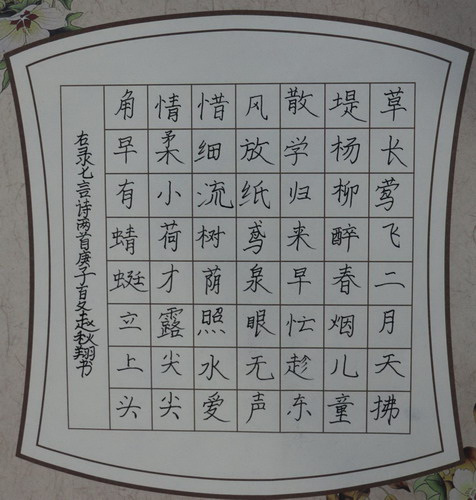 草长莺飞二月天拂
堤杨柳醉春烟儿童
散学归来早忙趁东
风放纸鸢泉眼无声
惜细流树荫照水爱
情柔小荷才露尖尖
角早有蜻蜓立上头
右录七言诗两首庚子冬赵秋翔书